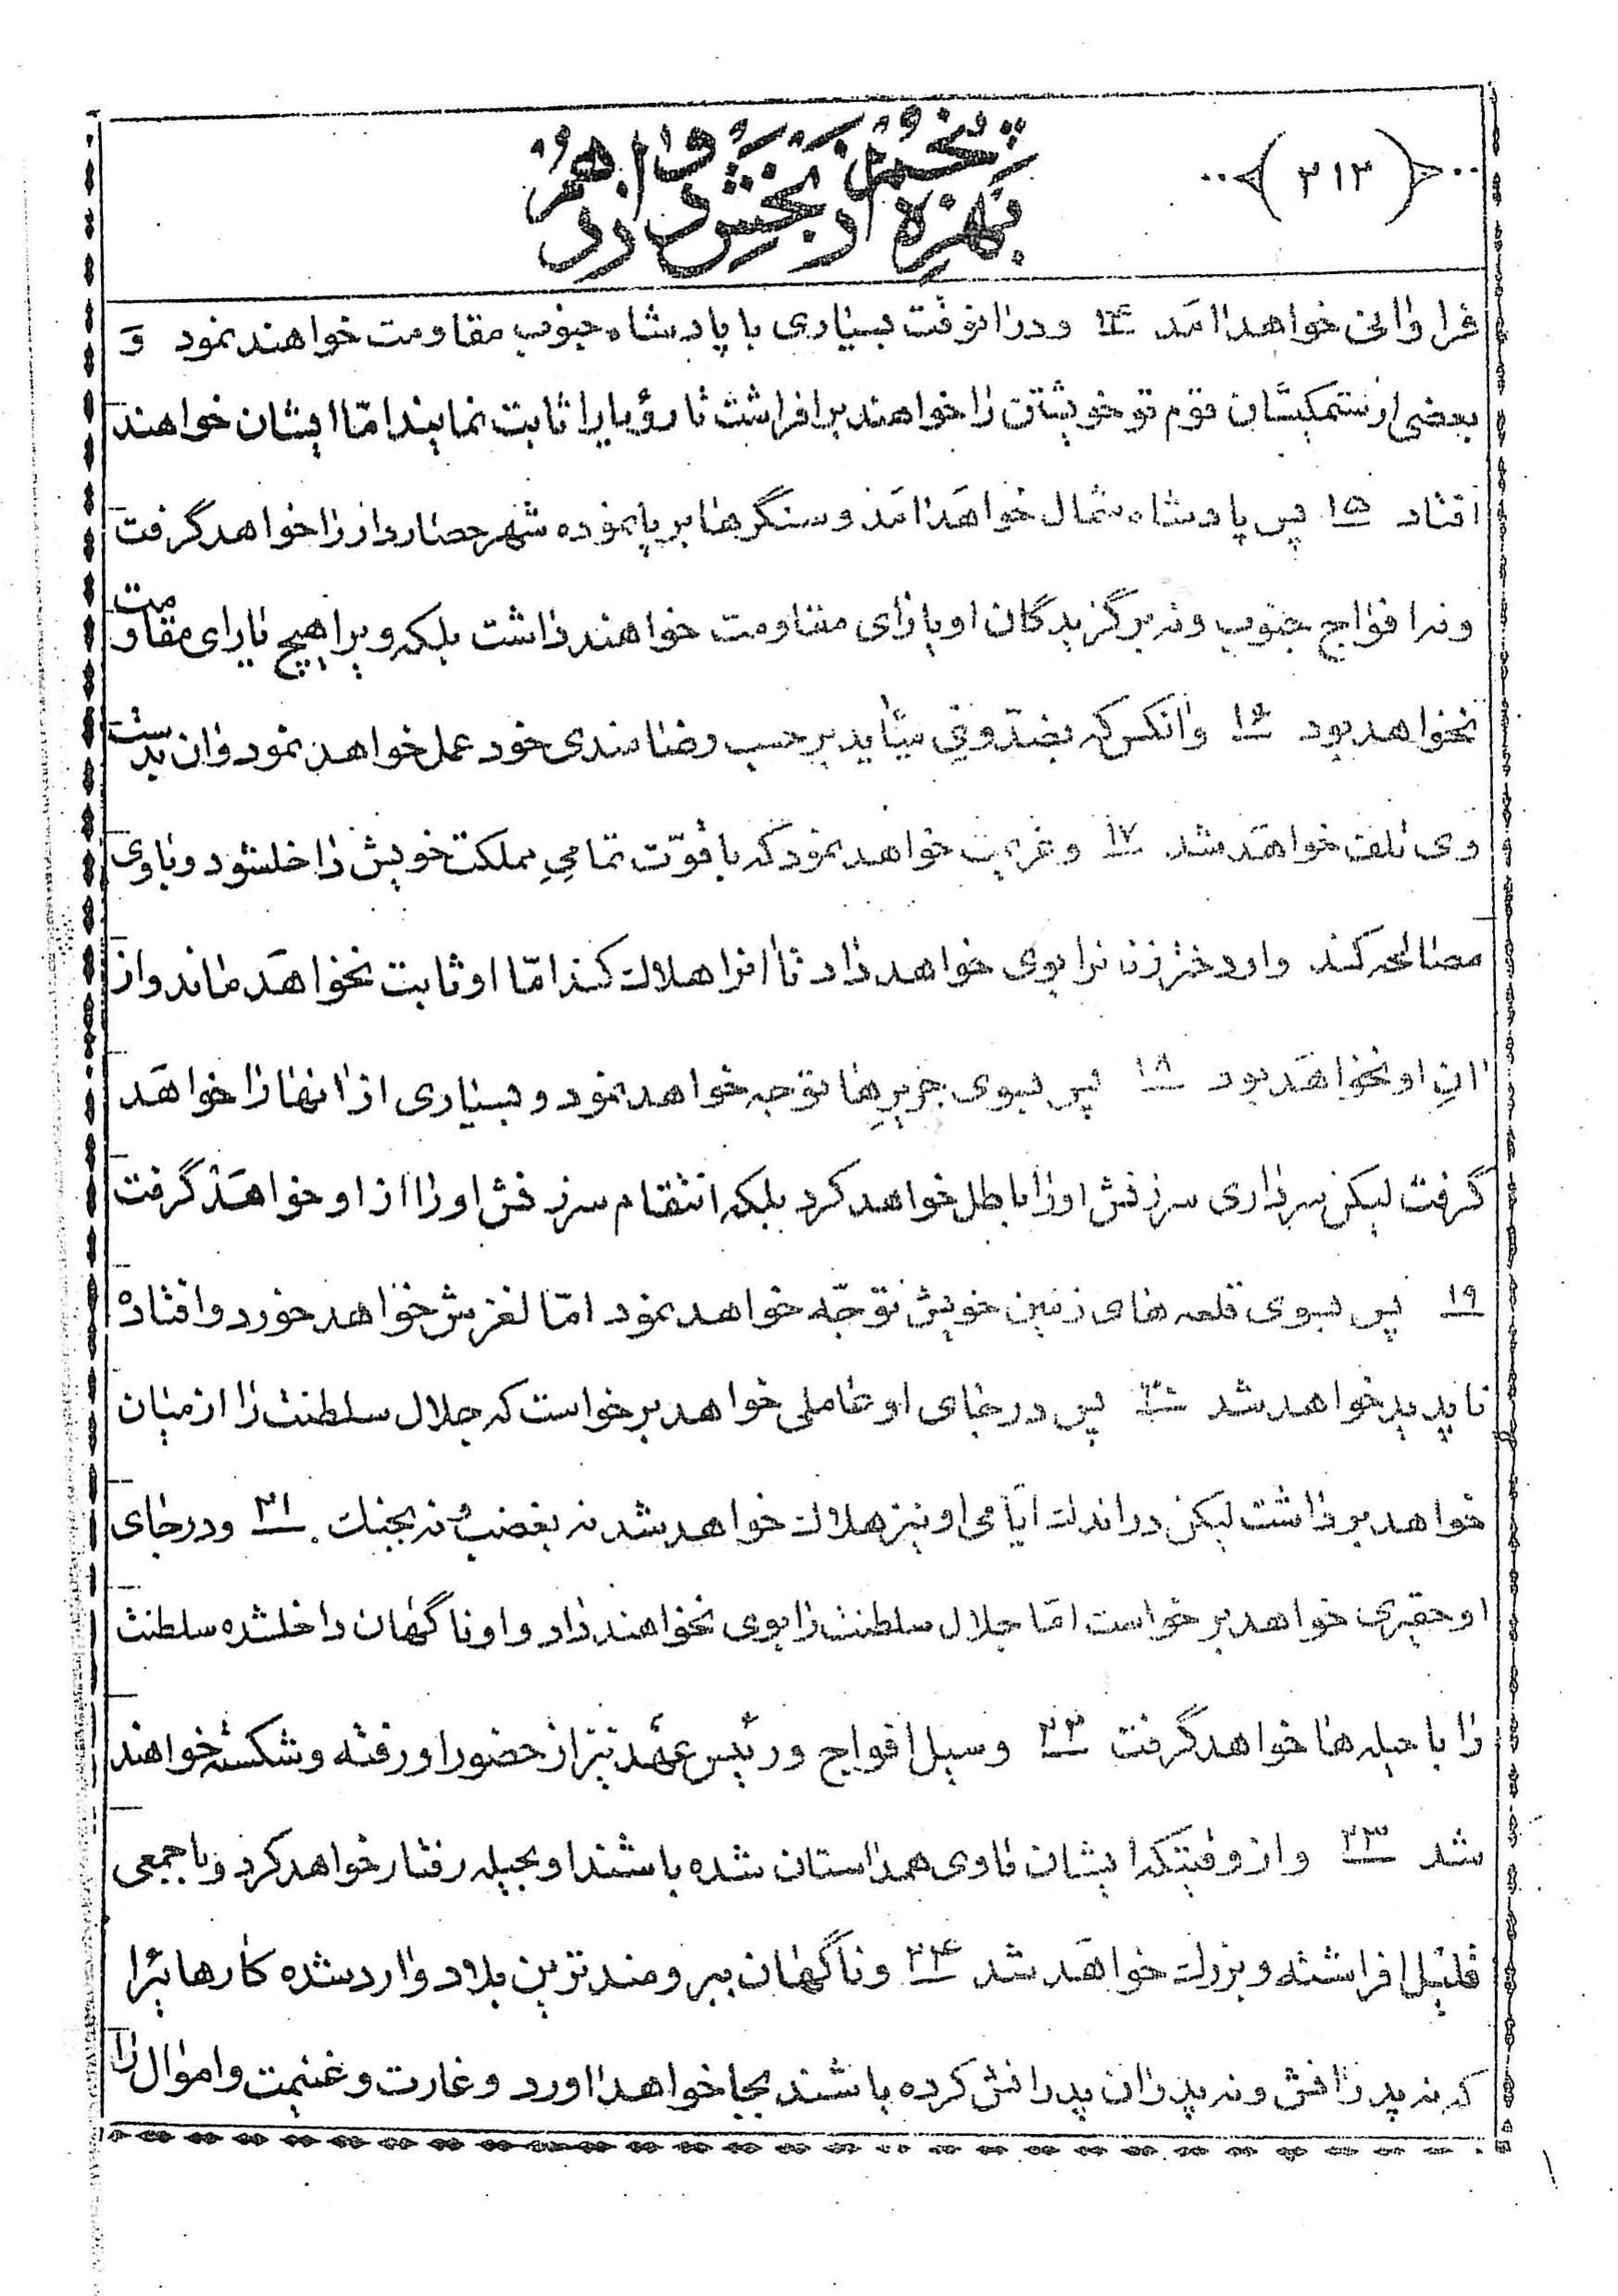 ۳۱۳
فراوانی خواهد امد ۱۴ و در انوقت بسیاری با پادشاه جنوب مقاومت خواهند نمود و
بعضی از ستمکیشان قوم تو خویشتن را خواهند برافراشت تا رؤیا را ثابت نمایند امّا ایشان خواهند
افتاد ۱۵ پس پادشاه شمال خواهد امد و سنگرها برپا نموده شهر حصاردار را خواهد گرفت
و نه افواج جنوب و نه برگزیدگان او یارای مقاومت خواهند داشت بلکه ویرا هیچ یارای مقاومت
نخواهد بود ۱۶ و انکس که بضدّ وی میٔاید برحسب رضامندی خود عمل خواهد نمود و ان بدست
وی تلف خواهد شد ۱۷ و عزیمت خواهد نمود که با قوّت تمامیِ مملکت خویش داخلشود و با وی
مصالحه کند و او دختر زنانرا بوی خواهد داد تا انرا هلاک کند امّا او ثابت نخواهد ماند و از
انِ او نخواهد بود ۱۸ پس بسوی جزیرها توجه خواهد نمود و بسیاری از انها را خواهد
گرفت لیکن سرداری سرزنش اورا باطل خواهد کرد بلکه انتقام سرزنش اورا از او خواهد گرفت
۱۹ پس بسوی قلعه های زمین خویش توجّه خواهد نمود امّا لغزش خواهد خورد و افتاده
ناپدید خواهد شد ۲۰ پس در جای او عاملی خواهد برخواست که جلال سلطنت را از میان
خواهد برداشت لیکن در اندک ایّامی او نیز هلاک خواهد شد نه بغضب و نه بجنک ۲۱ و در جای
او حقیری خواهد برخواست امّا جلال سلطنت را بوی نخواهند داد و او ناگهان داخلشده سلطنت
را با حیله ها خواهد گرفت ۲۲ و سیل افواج و رئیس عهد نیز از حضور او رفته و شکسته خواهند
شد ۲۳ و از وقتیکه ایشان با وی همداستان شده باشند او بحیله رفتار خواهد کرد و با جمعی
قلیل افراشته و بزرک خواهد شد ۲۴ و ناگهان ببرومندترین بلاد وارد شده کارهائیرا
که نه پدرانش و نه پدران پدرانش کرده باشند بجا خواهد اورد و غارت و غنیمت و اموال را